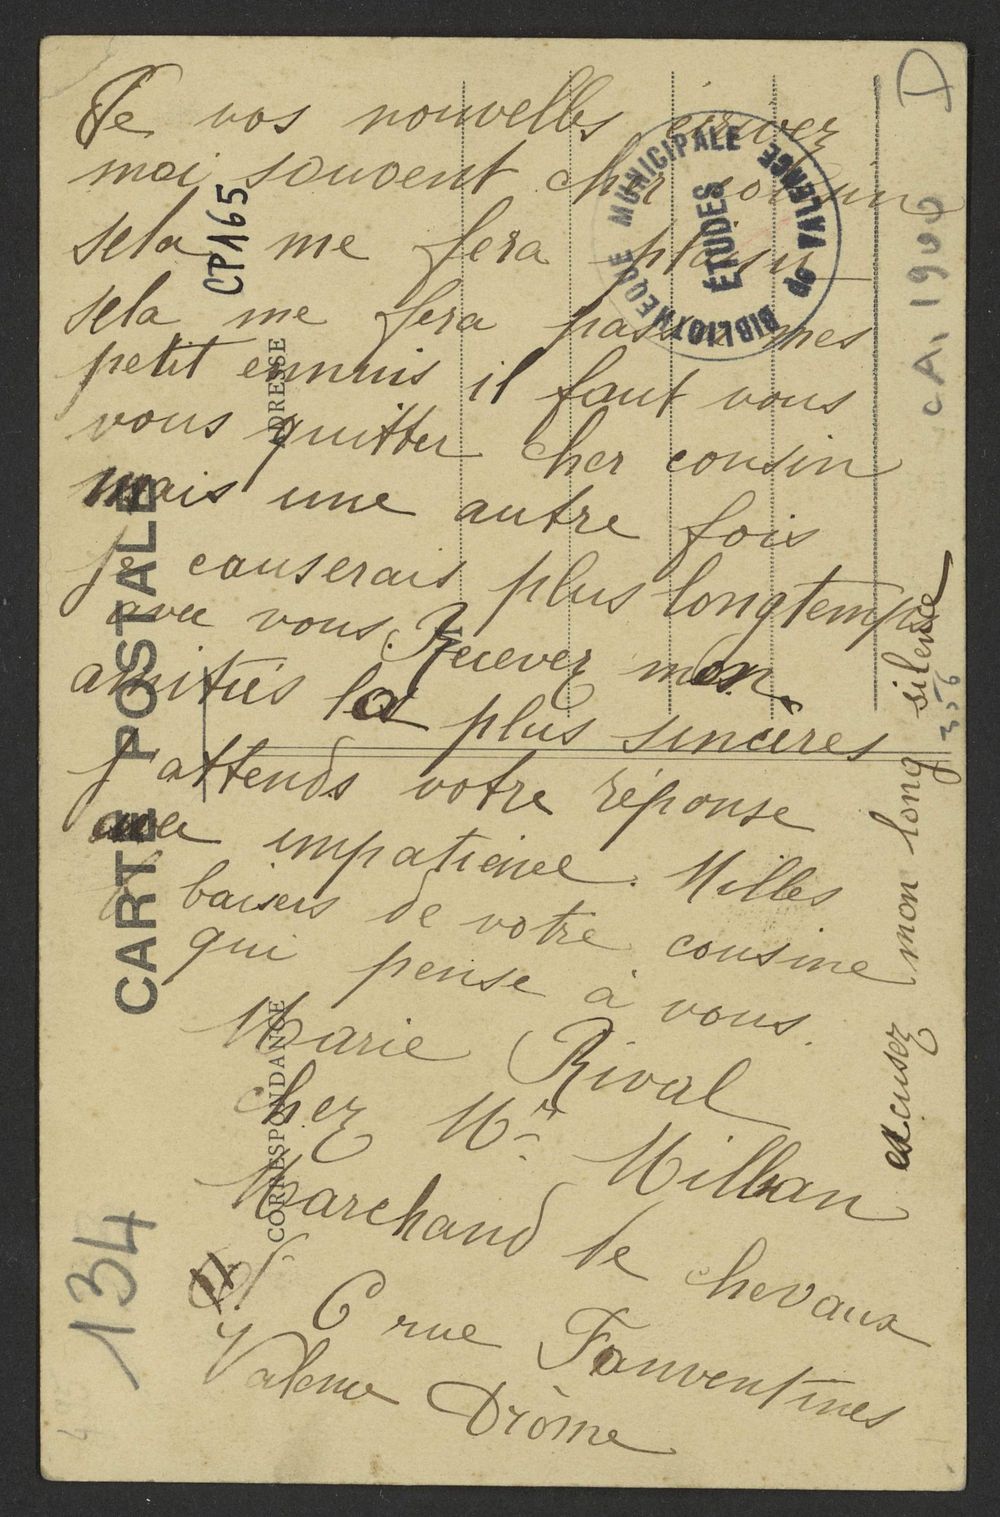 De vos nouvelles écrivez
moi souvent cher cousin
sela me fera plaisir
sela me fera passer mes
petit ennuis il faut vous
vous quitter cher cousin
mais une autre fois
je causerais plus longtemps
avec vous. Recevez mon
amitiés la plus sincères
J'attends votre réponse
avec impatience. Milles
baisers de votre cousine
qui pense à vous.
Marie Rival
chez Mr Millan
Marchand de chevaux
6 rue Fanventines
Valence Drôme
excusez mon long silence
CARTE POSTALE
ADRESSE
CORRESPONDANCE
CP165
134
BIBLIOTHEQUE MUNICIPALE de VALENCE
ÉTUDES
CA. 1900
D